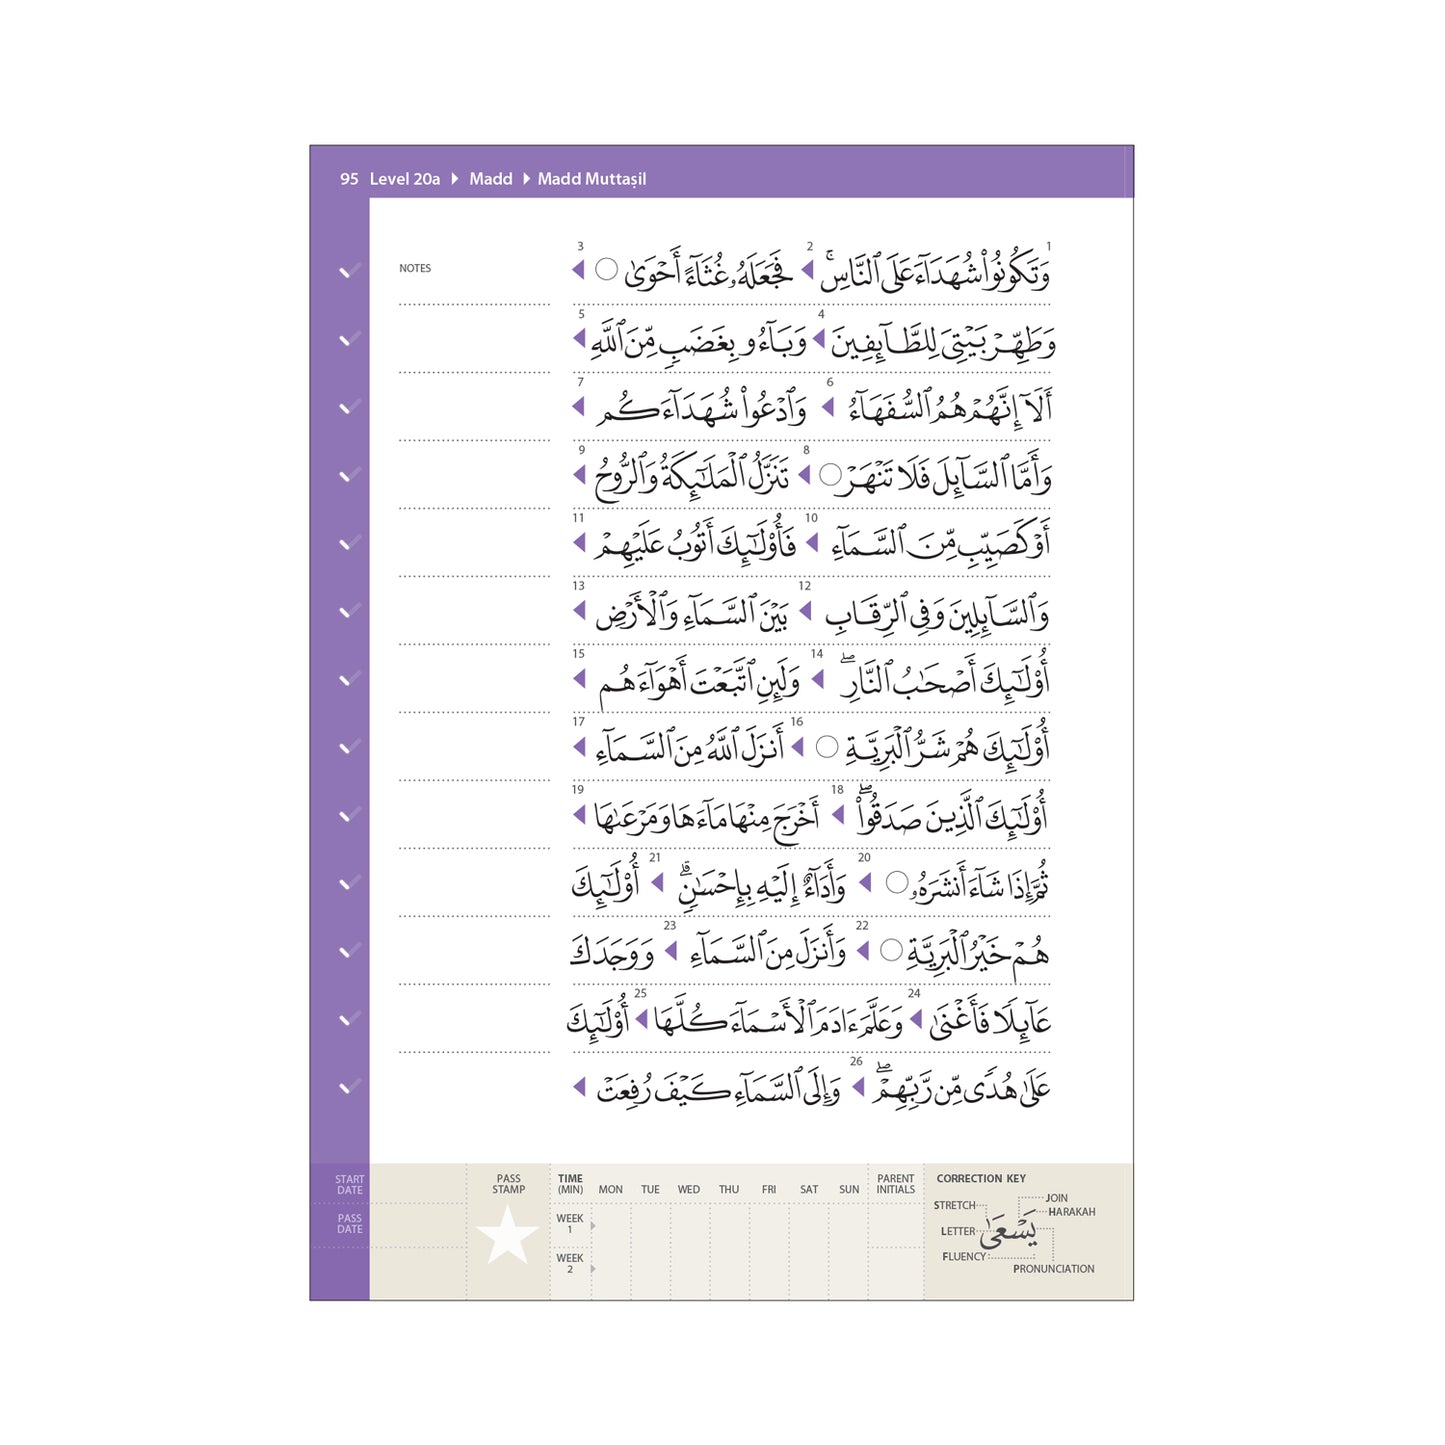 95 Level 20a Madd Madd Muttaṣil
NOTES
1 وَتَكُونُوا۟ شُهَدَآءَ عَلَى ٱلنَّاسِۚ 2 فَجَعَلَهُۥ غُثَآءً أَحْوَىٰ 3
وَطَهِّرْ بَيْتِىَ لِلطَّآئِفِينَ 4 وَبَآءُو بِغَضَبٍ مِّنَ ٱللَّهِ 5
أَلَآ إِنَّهُمْ هُمُ ٱلسُّفَهَآءُ 6 وَٱدْعُوا۟ شُهَدَآءَكُم 7
وَأَمَّا ٱلسَّآئِلَ فَلَا تَنْهَرْ 8 تَنَزَّلُ ٱلْمَلَـٰٓئِكَةُ وَٱلرُّوحُ 9
أَوْ كَصَيِّبٍ مِّنَ ٱلسَّمَآءِ 10 فَأُو۟لَـٰٓئِكَ أَتُوبُ عَلَيْهِمْ 11
وَٱلسَّآئِلِينَ وَفِى ٱلرِّقَابِ 12 بَيْنَ ٱلسَّمَآءِ وَٱلْأَرْضِ 13
أُو۟لَـٰٓئِكَ أَصْحَـٰبُ ٱلنَّارِۖ 14 وَلَئِنِ ٱتَّبَعْتَ أَهْوَآءَهُم 15
أُو۟لَـٰٓئِكَ هُمْ شَرُّ ٱلْبَرِيَّةِ 16 أَنزَلَ ٱللَّهُ مِنَ ٱلسَّمَآءِ 17
أُو۟لَـٰٓئِكَ ٱلَّذِينَ صَدَقُوا۟ۖ 18 أَخْرَجَ مِنْهَا مَآءَهَا وَمَرْعَىٰهَا 19
ثُمَّ إِذَا شَآءَ أَنشَرَهُۥ 20 وَأَدَآءٌ إِلَيْهِ بِإِحْسَـٰنٍۗ 21 أُو۟لَـٰٓئِكَ
هُمْ خَيْرُ ٱلْبَرِيَّةِ 22 وَأَنزَلَ مِنَ ٱلسَّمَآءِ 23 وَوَجَدَكَ
عَآئِلًا فَأَغْنَىٰ 24 وَعَلَّمَ ءَادَمَ ٱلْأَسْمَآءَ كُلَّهَا 25 أُو۟لَـٰٓئِكَ
عَلَىٰ هُدًى مِّن رَّبِّهِمْۖ 26 وَإِلَى ٱلسَّمَآءِ كَيْفَ رُفِعَتْ
START DATE
PASS DATE
PASS STAMP
TIME (MIN) MON TUE WED THU FRI SAT SUN PARENT INITIALS
WEEK 1
WEEK 2
CORRECTION KEY
STRETCH JOIN
HARAKAH
LETTER يَسْعَىٰ
FLUENCY
PRONUNCIATION